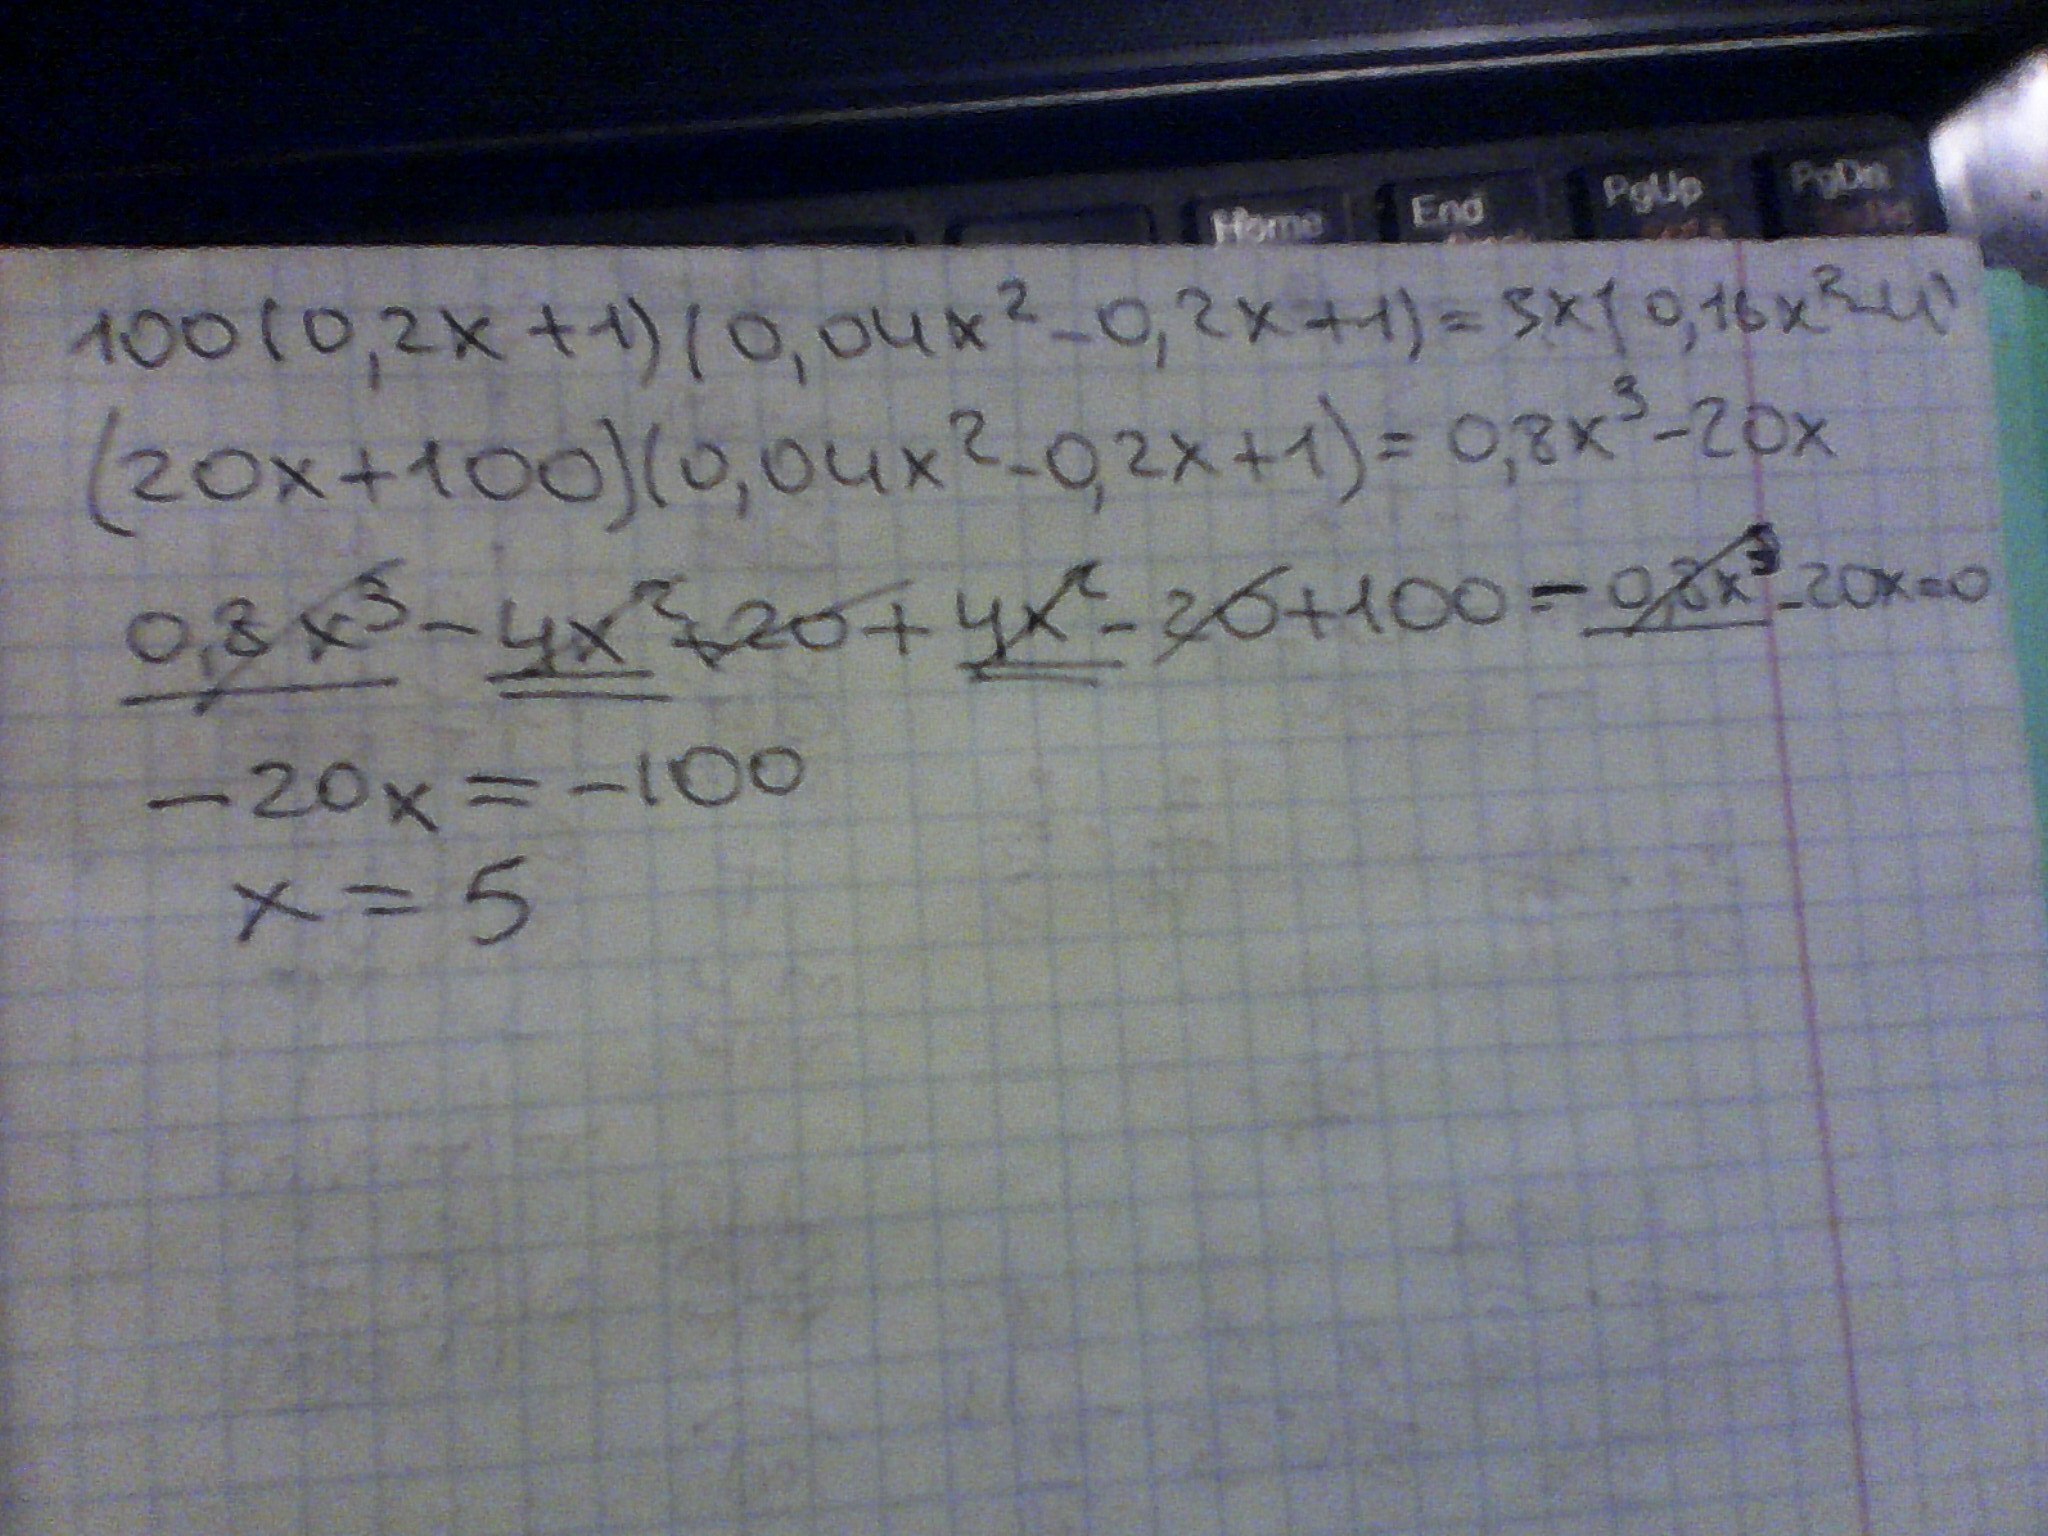 Home End PgUp PgDn
100(0,2x+1)(0,04x²-0,2x+1)=5x(0,16x²-4)
(20x+100)(0,04x²-0,2x+1)=0,8x³-20x
0,8x³-4x²+20+4x²-20+100=-0,8x³-20x=0
-20x=-100
x=5